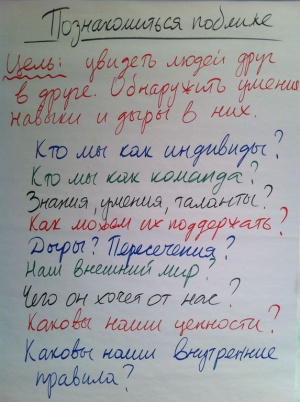 Познакомиться поближе
Цель: увидеть людей друг
в друге. Обнаружить умения
навыки и дыры в них.
Кто мы как индивиды?
Кто мы как команда?
Знания, умения, таланты?
Как можем их поддержать?
Дыры? Пересечения?
Наш внешний мир?
Чего он хочет от нас?
Каковы наши ценности?
Каковы наши внутренние
правила?